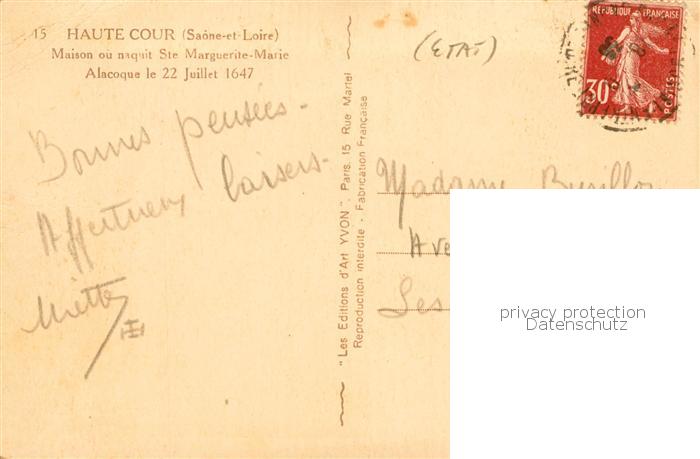 15 HAUTE COUR (Saône-et-Loire)
Maison où naquit Ste Marguerite-Marie
Alacoque le 22 Juillet 1647
(ETAT)
RÉPUBLIQUE FRANÇAISE
30c
POSTES
Bonnes pensées -
Affectueux baisers -
Miette
"Les Editions d'Art YVON". Paris. 15 Rue Martel
Reproduction interdite - Fabrication Française
Madame
Ave
Les
privacy protection
Datenschutz